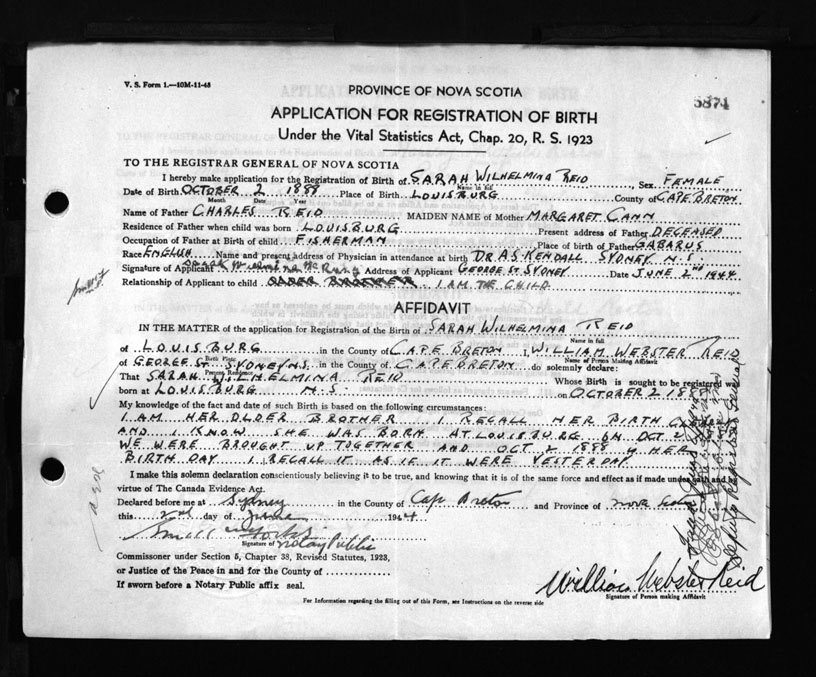 V. S. Form 1.—10M-11-43
PROVINCE OF NOVA SCOTIA
5874
APPLICATION FOR REGISTRATION OF BIRTH
Under the Vital Statistics Act, Chap. 20, R. S. 1923
TO THE REGISTRAR GENERAL OF NOVA SCOTIA
I hereby make application for the Registration of Birth of SARAH WILHELMINA REID Sex FEMALE
Name in full
Date of Birth OCTOBER 2 1888 Place of Birth LOUISBURG County of CAPE BRETON
Month Date Year
Name of Father CHARLES REID MAIDEN NAME of Mother MARGARET CANN
Residence of Father when child was born LOUISBURG Present address of Father DECEASED
Occupation of Father at Birth of child FISHERMAN Place of birth of Father GABARUS
Race ENGLISH Name and present address of Physician in attendance at birth DR A.S. KENDALL SYDNEY N.S.
Signature of Applicant Address of Applicant GEORGE ST SYDNEY Date JUNE 2nd 1944
Relationship of Applicant to child OLDER BROTHER I AM THE CHILD
AFFIDAVIT
IN THE MATTER of the application for Registration of the Birth of SARAH WILHELMINA REID
Name in full
of LOUISBURG in the County of CAPE BRETON I, WILLIAM WEBSTER REID
Birth Place Name of Person Making Affidavit
of GEORGE ST. SYDNEY N.S. in the County of CAPE BRETON do solemnly declare:
Present Residence
That SARAH WILHELMINA REID Whose Birth is sought to be registered was
born at LOUISBURG N.S. on OCTOBER 2 1888
My knowledge of the fact and date of such Birth is based on the following circumstances:
I AM HER OLDER BROTHER I RECALL HER BIRTH CLEARLY
AND I KNOW SHE WAS BORN AT LOUISBURG ON OCT 2
WE WERE BROUGHT UP TOGETHER AND OCT 2 1888 IS HER
BIRTH DAY I RECALL IT AS IF IT WERE YESTERDAY
I make this solemn declaration conscientiously believing it to be true, and knowing that it is of the same force and effect as if made under oath and by
virtue of The Canada Evidence Act.
Declared before me at Sydney in the County of Cape Breton and Province of Nova Scotia
this 2nd day of June 1944
Signature of Notary Public
Commissioner under Section 5, Chapter 38, Revised Statutes, 1923,
or Justice of the Peace in and for the County of
If sworn before a Notary Public affix seal.
William Webster Reid
Signature of Person making Affidavit
For Information regarding the filling out of this Form, see Instructions on the reverse side
Deputy Registrar General